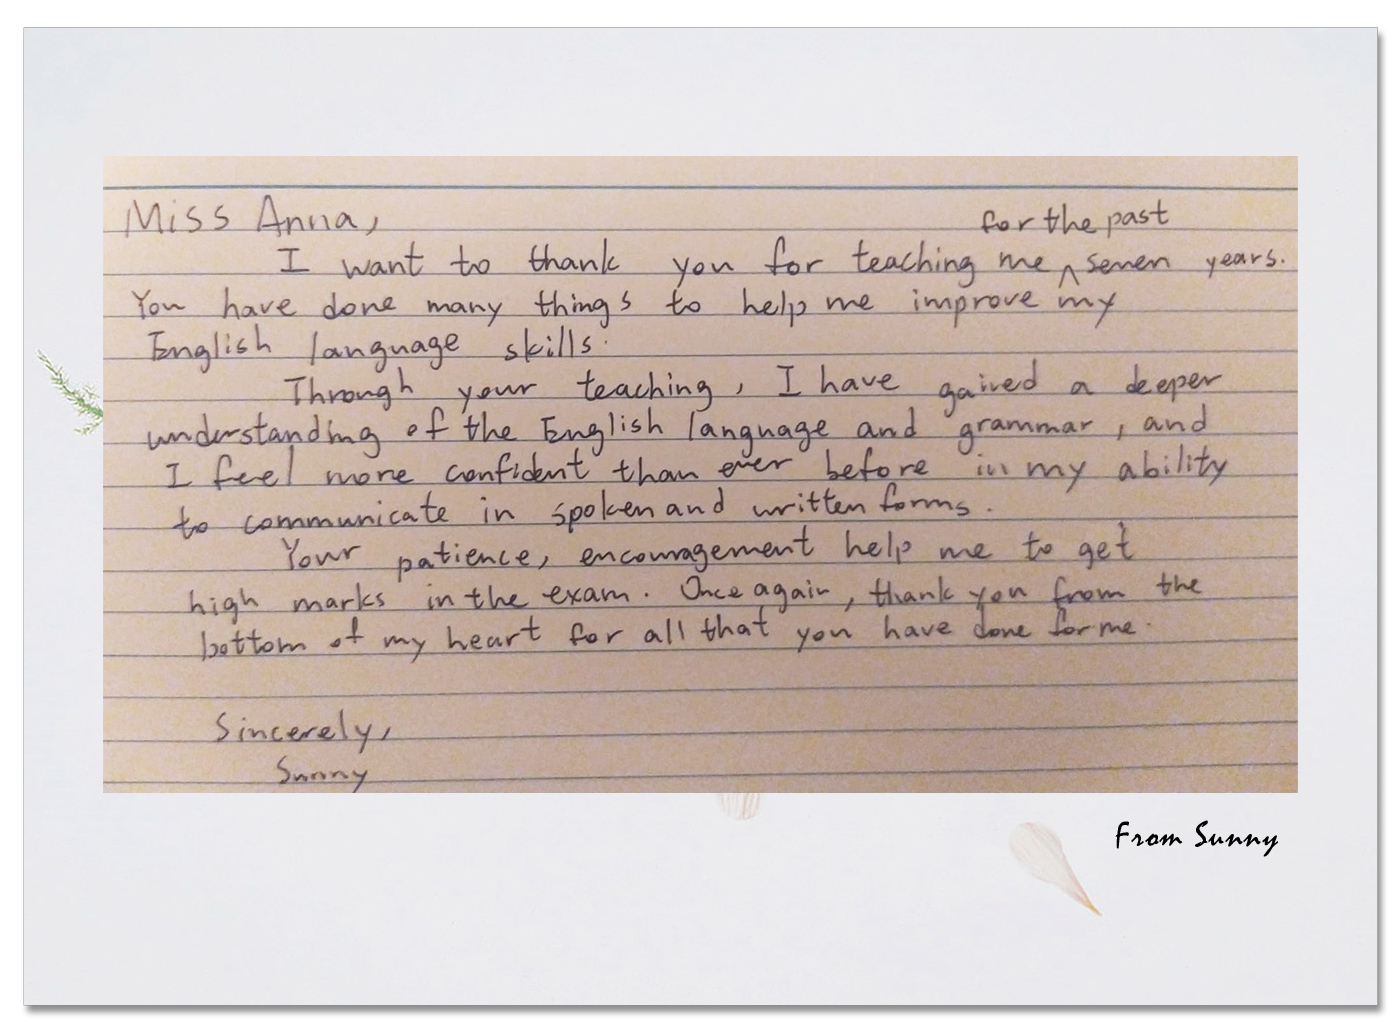 Miss Anna,
for the past
I want to thank you for teaching me ^ seven years.
You have done many things to help me improve my
English language skills.
Through your teaching, I have gained a deeper
understanding of the English language and grammar, and
I feel more confident than ever before in my ability
to communicate in spoken and written forms.
Your patience, encouragement help me to get
high marks in the exam. Once again, thank you from the
bottom of my heart for all that you have done for me.
Sincerely,
Sunny
From Sunny